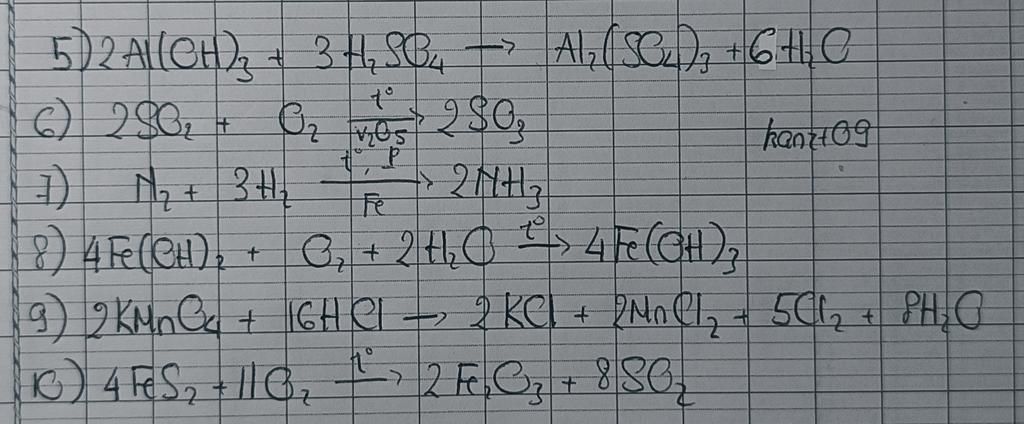 5) 2Al(OH)₃ + 3H₂SO₄ → Al₂(SO₄)₃ + 6H₂O
6) 2SO₂ + O₂ t° → V₂O₅ 2SO₃
hanz+09
7) N₂ + 3H₂ t°, P → Fe 2NH₃
8) 4Fe(OH)₂ + O₂ + 2H₂O t° → 4Fe(OH)₃
9) 2KMnO₄ + 16HCl → 2KCl + 2MnCl₂ + 5Cl₂ + 8H₂O
10) 4FeS₂ + 11O₂ t° → 2Fe₂O₃ + 8SO₂